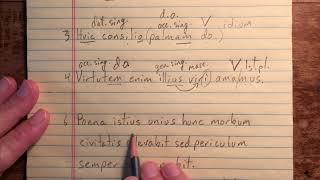 dat. sing. d.o. acc. sing. V idiom
3. Huic consilio (palmam do.)
acc. sing. d.o gen. sing. masc. V, 1st pl.
4. Virtutem enim illius viri amamus.
Poena istius unius hunc morbum
civitatis sed periculum
semper